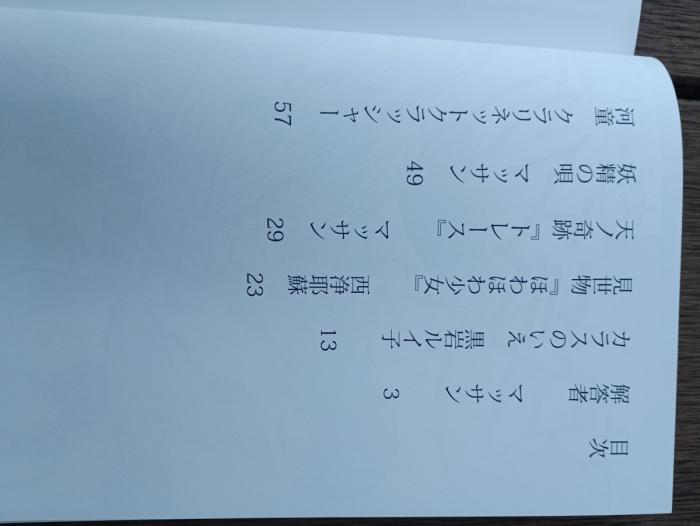 目次
解答者 マッサン 3
カラスのいえ 黒岩ルイ子 13
見世物『ほわほわ少女』 西浄耶蘇 23
天ノ奇跡『トレース』 マッサン 29
妖精の唄 マッサン 49
河童 クラリネットクラッシャー 57